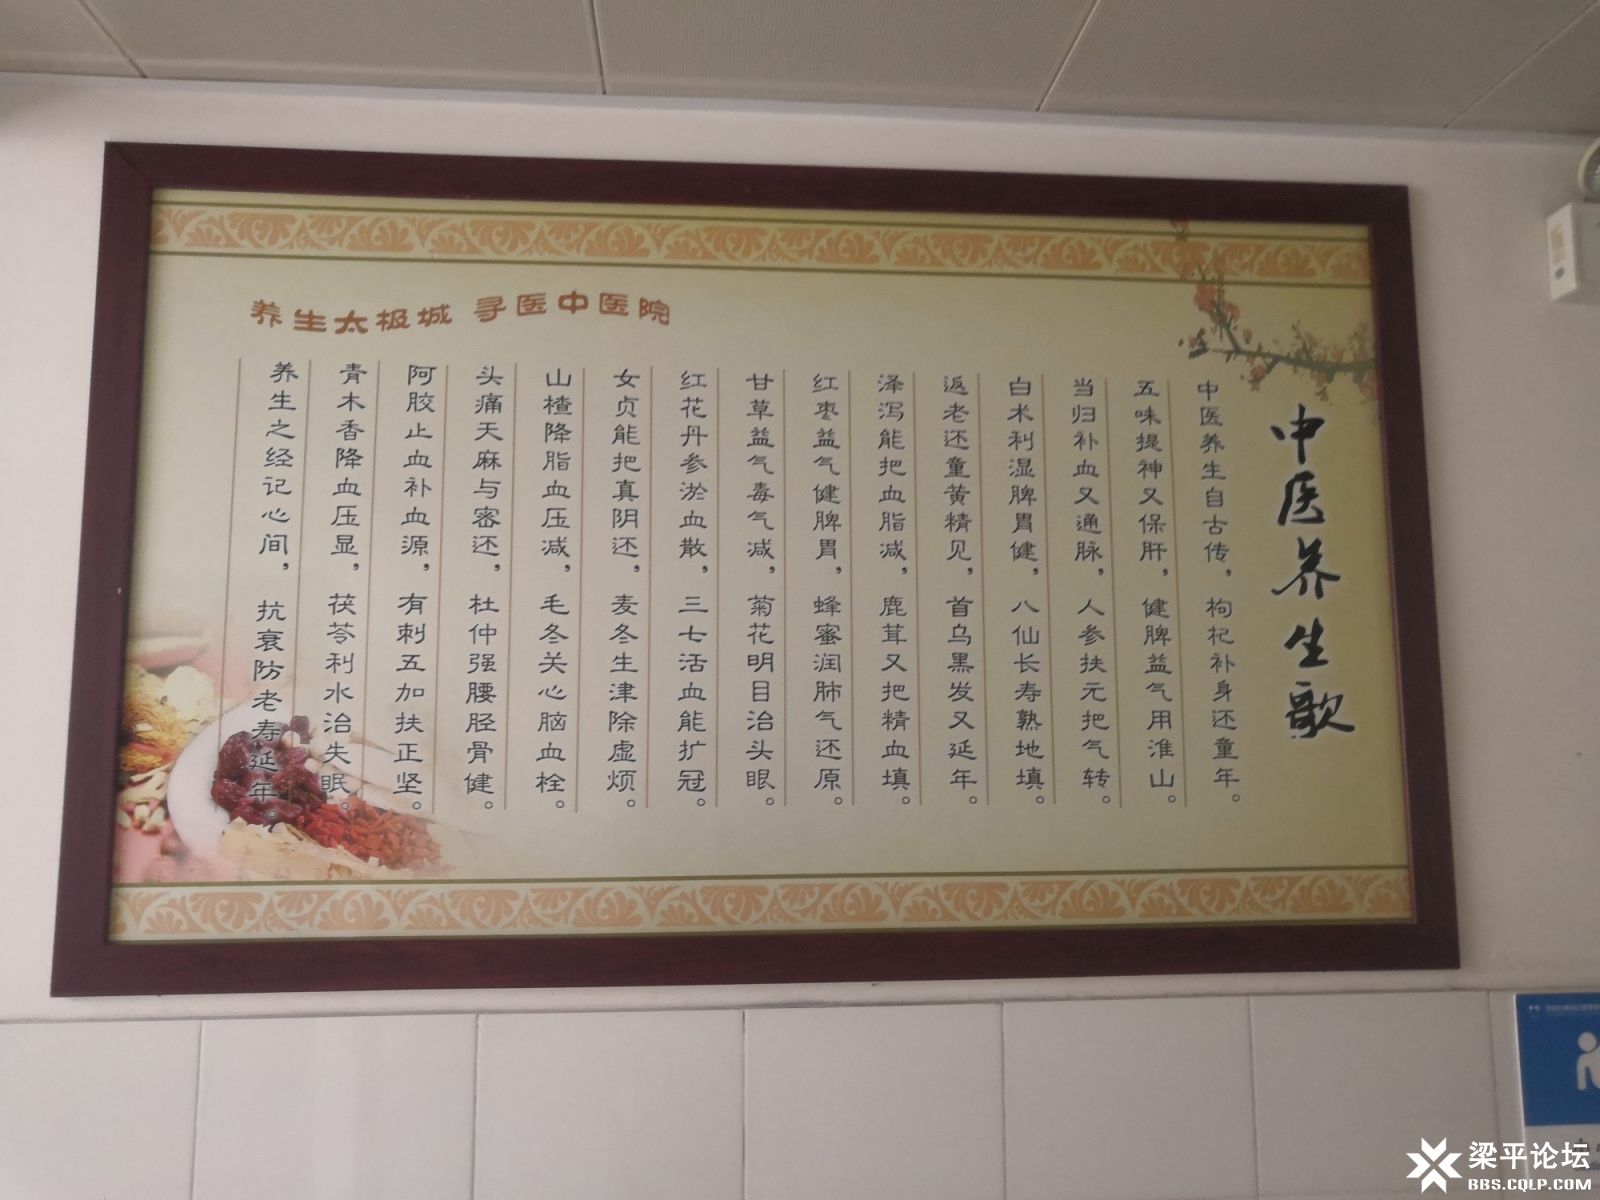 养生太极城 寻医中医院
中医养生歌
中医养生自古传，枸杞补身还童年。
五味提神又保肝，健脾益气用淮山。
当归补血又通脉，人参扶元把气转。
白术利湿脾胃健，八仙长寿熟地填。
返老还童黄精见，首乌黑发又延年。
泽泻能把血脂减，鹿茸又把精血填。
红枣益气健脾胃，蜂蜜润肺气还原。
甘草益气毒气减，菊花明目治头眼。
红花丹参淤血散，三七活血能扩冠。
女贞能把真阴还，麦冬生津除虚烦。
山楂降脂血压减，毛冬关心脑血栓。
头痛天麻与密还，杜仲强腰胫骨健。
阿胶止血补血源，有刺五加扶正坚。
青木香降血压显，茯苓利水治失眠。
养生之经记心间，抗衰防老寿延年。
梁平论坛
BBS.CQLP.COM